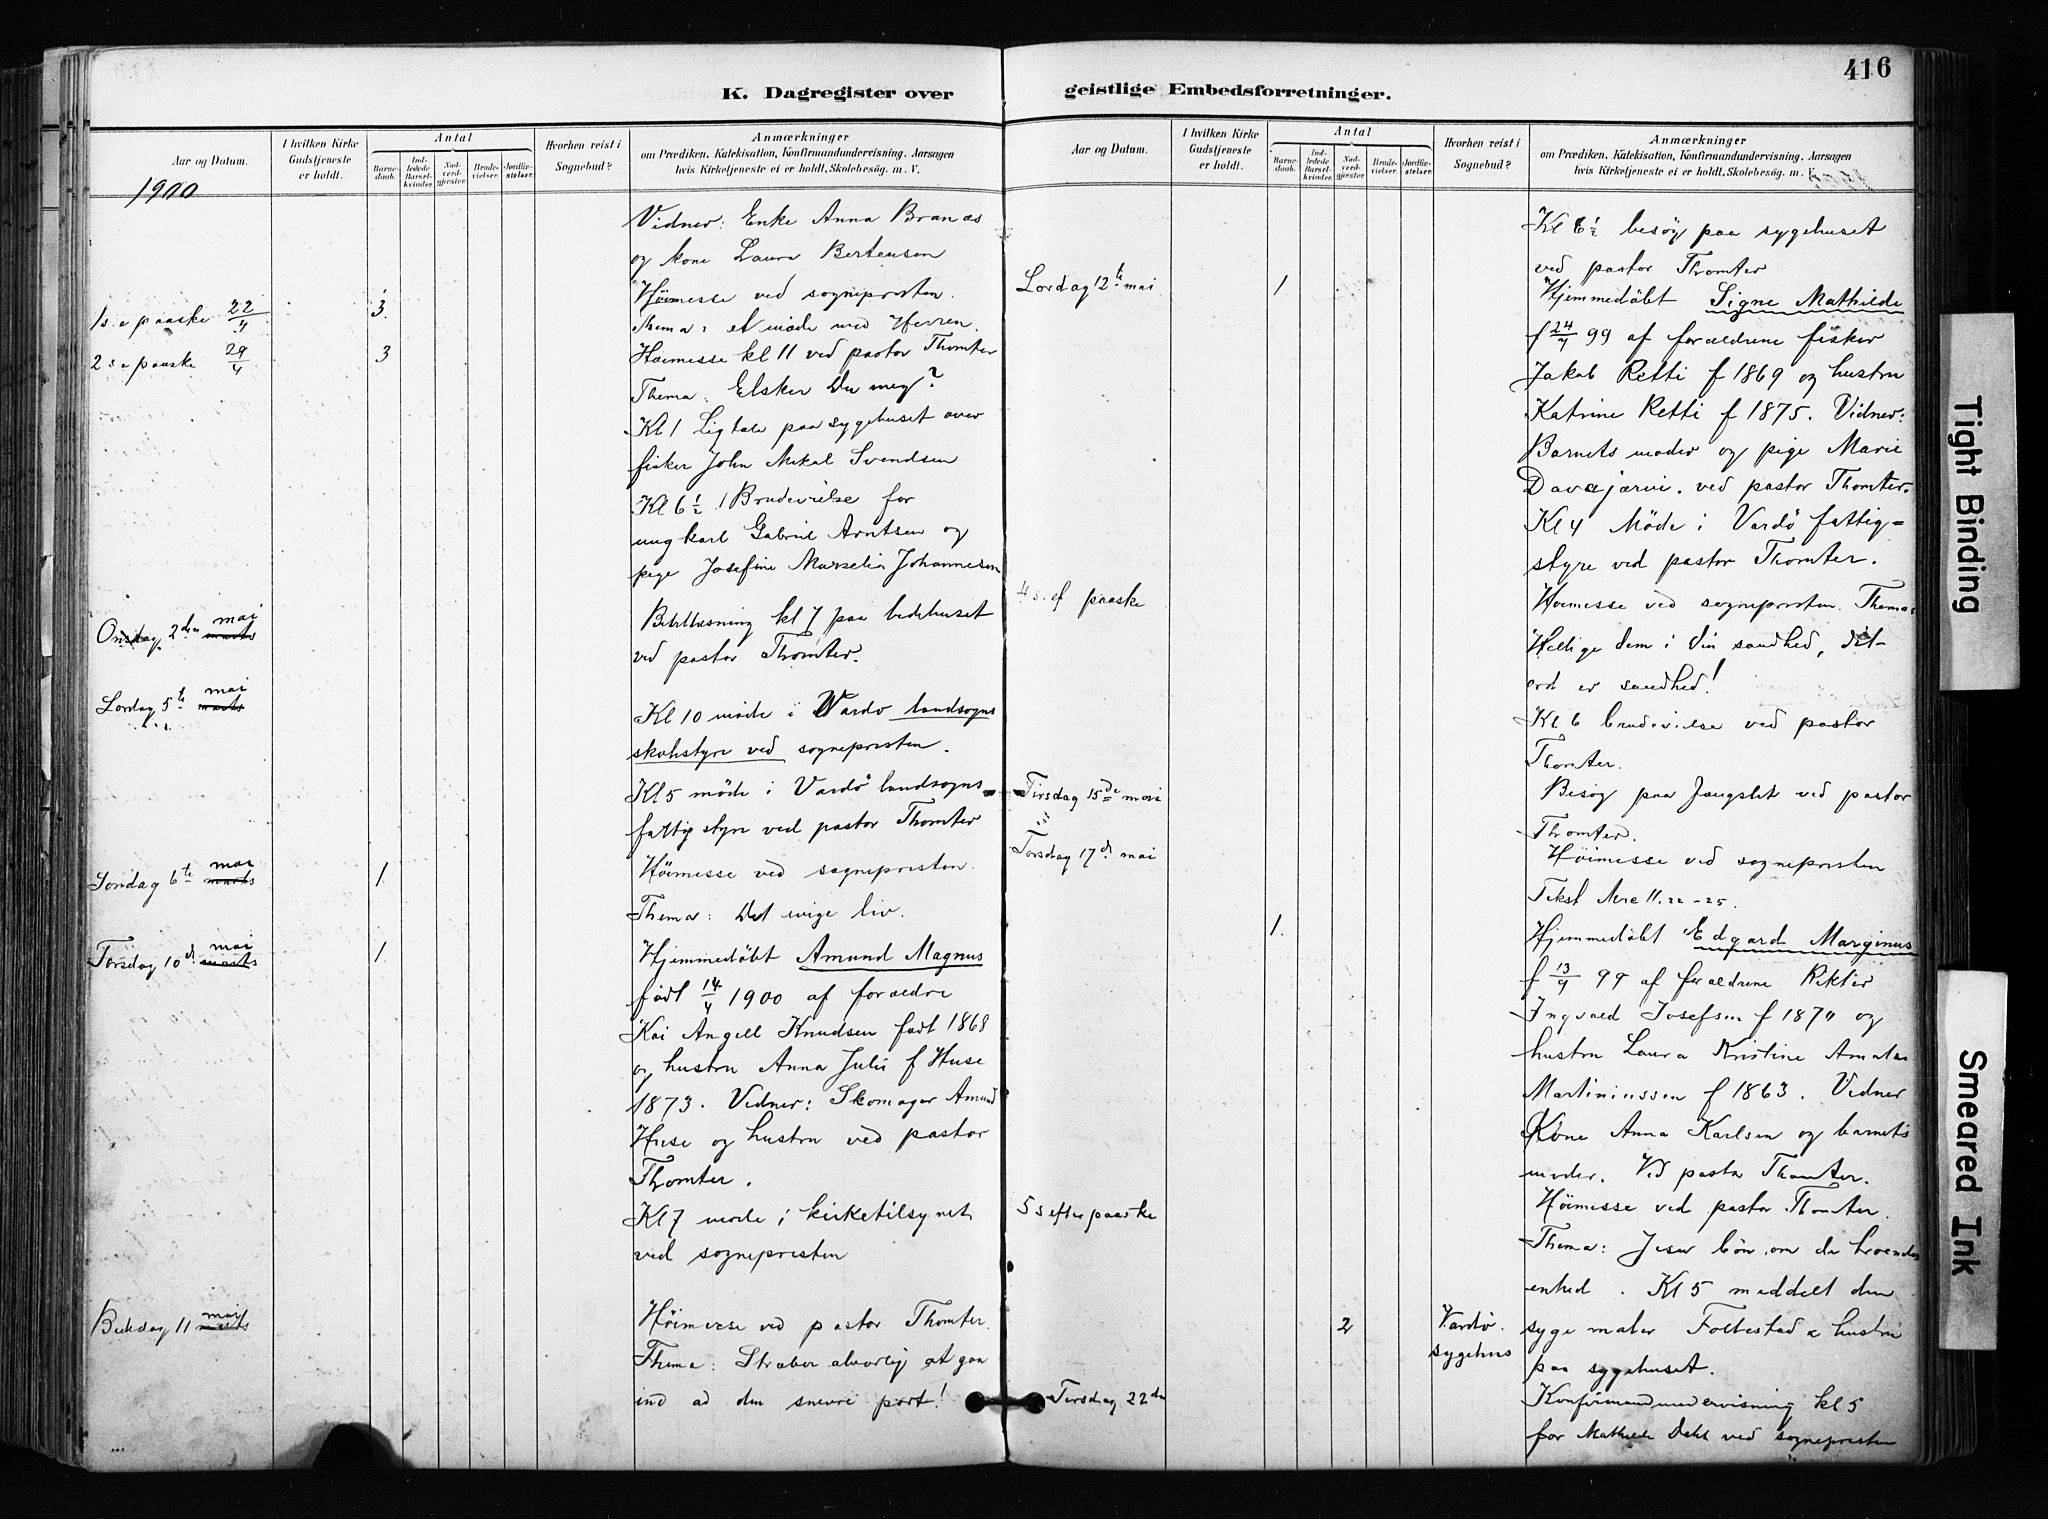 416
K. Dagregister over
geistlige Embedsforretninger.
Aar og Datum.
I hvilken Kirke
Gudstjeneste
er holdt.
Antal
Barne-
daab.
Ind-
ledede
Barsel-
kvinder.
Nad-
verd-
gjester.
Brude-
vielser.
Jordfæ-
stelser.
Hvorhen reist i
Sognebud?
Anmærkninger
om Prædiken, Katekisation, Konfirmandundervisning. Aarsagen
hvis Kirketjeneste ei er holdt, Skolebesøg. m. V.
1900
Vidner: Enke Anna Branæs
og kone Laura Bertensen
1 s. e paaske 22/4
3.
Høimesse ved sognepresten.
Thema: et møde med Herren.
2 s e paaske 29/4
3
Høimesse kl 11 ved pastor Thomter
Thema: Elsker Du meg?
Kl 1 Ligtale paa sygehuset over
fisker John Mikal Svendsen
Kl 6 1/2 1 Brudevielse for
ungkarl Gabriel Arntsen og
pige Josefine Marselia Johannesen
Onsdag 2den mai marts
Bibellæsning kl 7 paa bedehuset
ved pastor Thomter.
Lørdag 5te mai marts
Kl 10 møde i Vardø landsogns
skolestyre ved sognepresten.
Kl 5 møde i Vardö landsogns
fattigstyre ved pastor Thomter
Søndag 6te mai marts
1.
Høimesse ved sognepresten.
Thema: Det evige liv.
Torsdag 10d. mai marts
1.
Hjemmedöbt Amund Magnus
født 14/4 1900 af forældre
Kai Angell Knudsen født 1868
og hustru Anna Juli f Huse
1873. Vidner: Skomager Amund
Huse og hustru ved pastor
Thomter.
Kl 7 møde i kirketilsynet
ved sognepresten
Bededag 11 mai marts
Høimesse ved pastor Thomter.
Thema: Stræber alvorlig at gaa
ind ad den snevre port!
Aar og Datum.
I hvilken Kirke
Gudstjeneste
er holdt.
Antal
Barne-
daab.
Ind-
ledede
Barsel-
kvinder.
Nad-
verd-
gjester.
Brude-
vielser.
Jordfæ-
stelser.
Hvorhen reist i
Sognebud?
Anmærkninger
om Prædiken, Katekisation, Konfirmandundervisning. Aarsagen
hvis Kirketjeneste ei er holdt, Skolebesøg. m.
Kl 6 1/2 besøg paa sygehuset
ved pastor Thomter
Lørdag 12te mai
1
Hjemmedöbt Signe Mathilde
f 24/7 99 af forældrene fisker
Jakob Retti f 1869 og hustru
Katrine Retti f 1875. Vidner:
Barnets moder og pige Marie
Davajærvi. ved pastor Thomter.
Kl 4 Möde i Vardö fattig=
styre ved pastor Thomter.
4 s. ef paaske
Høimesse ved sognepresten. Thema:
Hellige dem i din sandhed, dit
ord er sandhed!
Kl 6 brudevielse ved pastor
Thomter.
Tirsdag 15de mai
Besøg paa ved pastor
Thomter.
Torsdag 17d. mai
Høimesse ved sognepresten
Tekst Mrc 11. 22-25.
1.
Hjemmedöbt Edgard Marginus
f 13/9 99 af forældrene
Ingvald Josefsen f 1874 og
hustru Laura Kristine
Martiniussen f 1863. Vidner
Kone Anna Karlsen og barnets
moder. Ved pastor Thomter.
5 s efter paaske
Høimesse ved pastor Thomter.
Thema: Jesu bön om de troendes
enhed. Kl 5 meddelt den
2
Vardø.
sygehus
syge maler Foltestad & hustru
paa sygehuset.
Tirsdag 22de
Konfirmandundervisning kl 5
for Mathilde Dahl ved sognepresten
Tight Binding
Smeared Ink